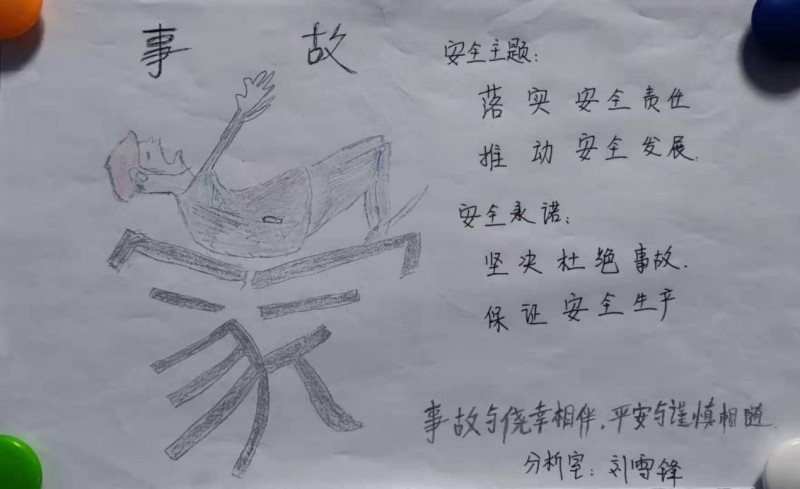 事故
家
安全主题：
落实安全责任
推动安全发展.
安全承诺：
坚决杜绝事故.
保证安全生产
事故与侥幸相伴，平安与谨慎相随.
分析室：刘雪锋